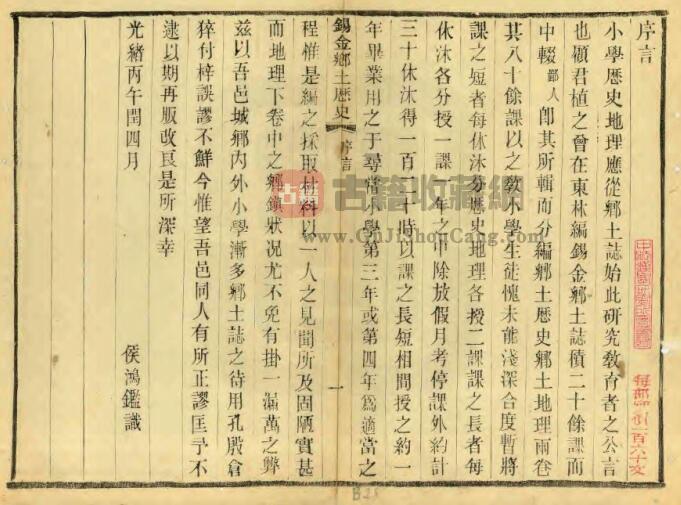 序言
小學歷史地理應從鄉土誌始此研究教育者之公言
也顧君植之曾在東林編錫金鄉土誌積二十餘課而
中輟鄙人卽其所輯而分編鄉土歷史鄉土地理兩卷
共八十餘課以之教小學生徒愧未能淺深合度暫將
課之短者每休沐分歷史地理各授二課課之長者每
休沐各分授一課一年之中除放假月考停課外約計
三十休沐得一百二十時以課之長短相間授之約一
年畢業用之于尋常小學第三年或第四年爲適當之
錫金鄉土歷史 序言 一
程惟是編之採取材料以一人之見聞所及固陋實甚
而地理下卷中之鄉鎮狀况尤不免有掛一漏萬之弊
茲以吾邑城鄉內外小學漸多鄉土誌之待用孔殷倉
猝付梓誤謬不鮮今惟望吾邑同人有所正謬匡予不
逮以期再版改良是所深幸
光緒丙午閏四月
侯鴻鑑識
古籍收藏網
www.GuJiShouCang.com
每部 一百六十文
B25